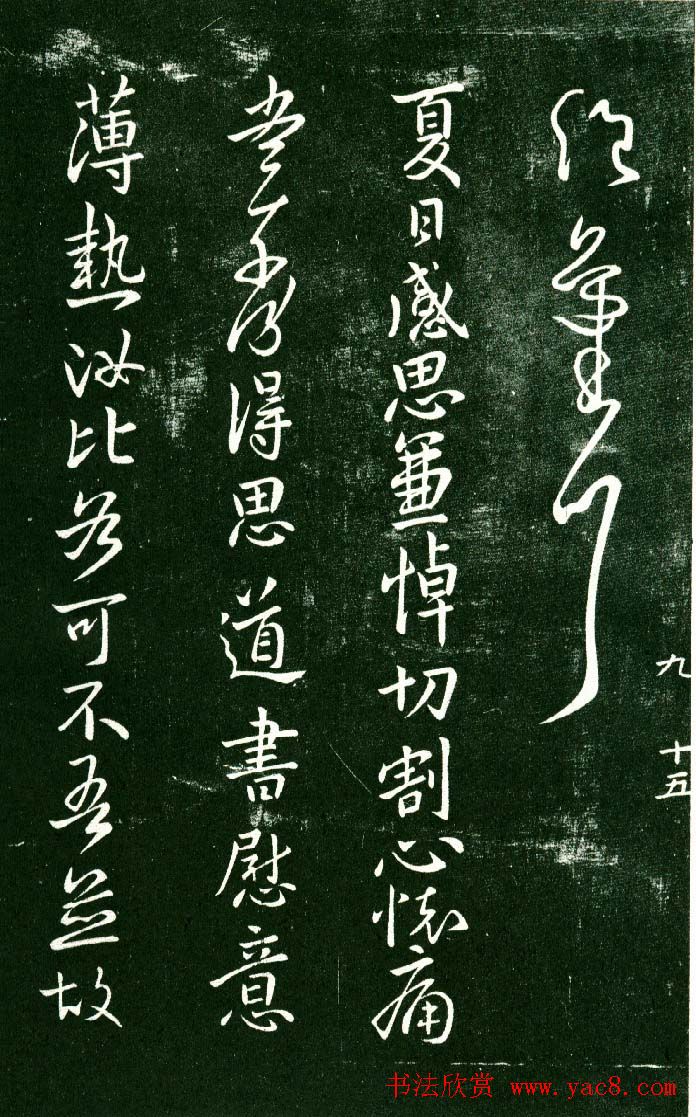 九 十五
夏日感思兼悼切割心懷痛
當奈何得思道書慰意
薄熱汝比各可不吾並故
书法欣赏 www.yac8.com